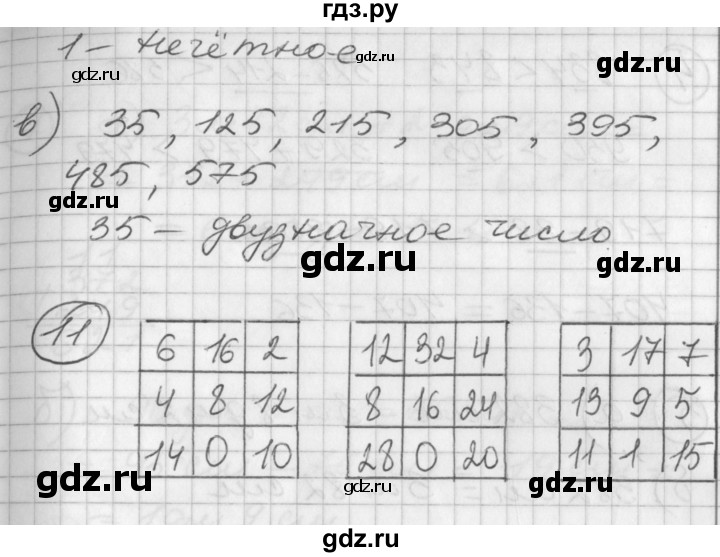 гдз.ру
1 – нечётное
gdz.ru gdz.ru
в) 35, 125, 215, 305, 395,
485, 575
gdz.ru gdz.ru
35 – двузначное число
gdz.ru gdz.ru
11
6 16 2 12 32 4 3 17 7
4 8 12 8 16 24 13 9 5
14 0 10 28 0 20 11 1 15
gdz.ru gdz.ru gdz.ru
gdz.ru gdz.ru